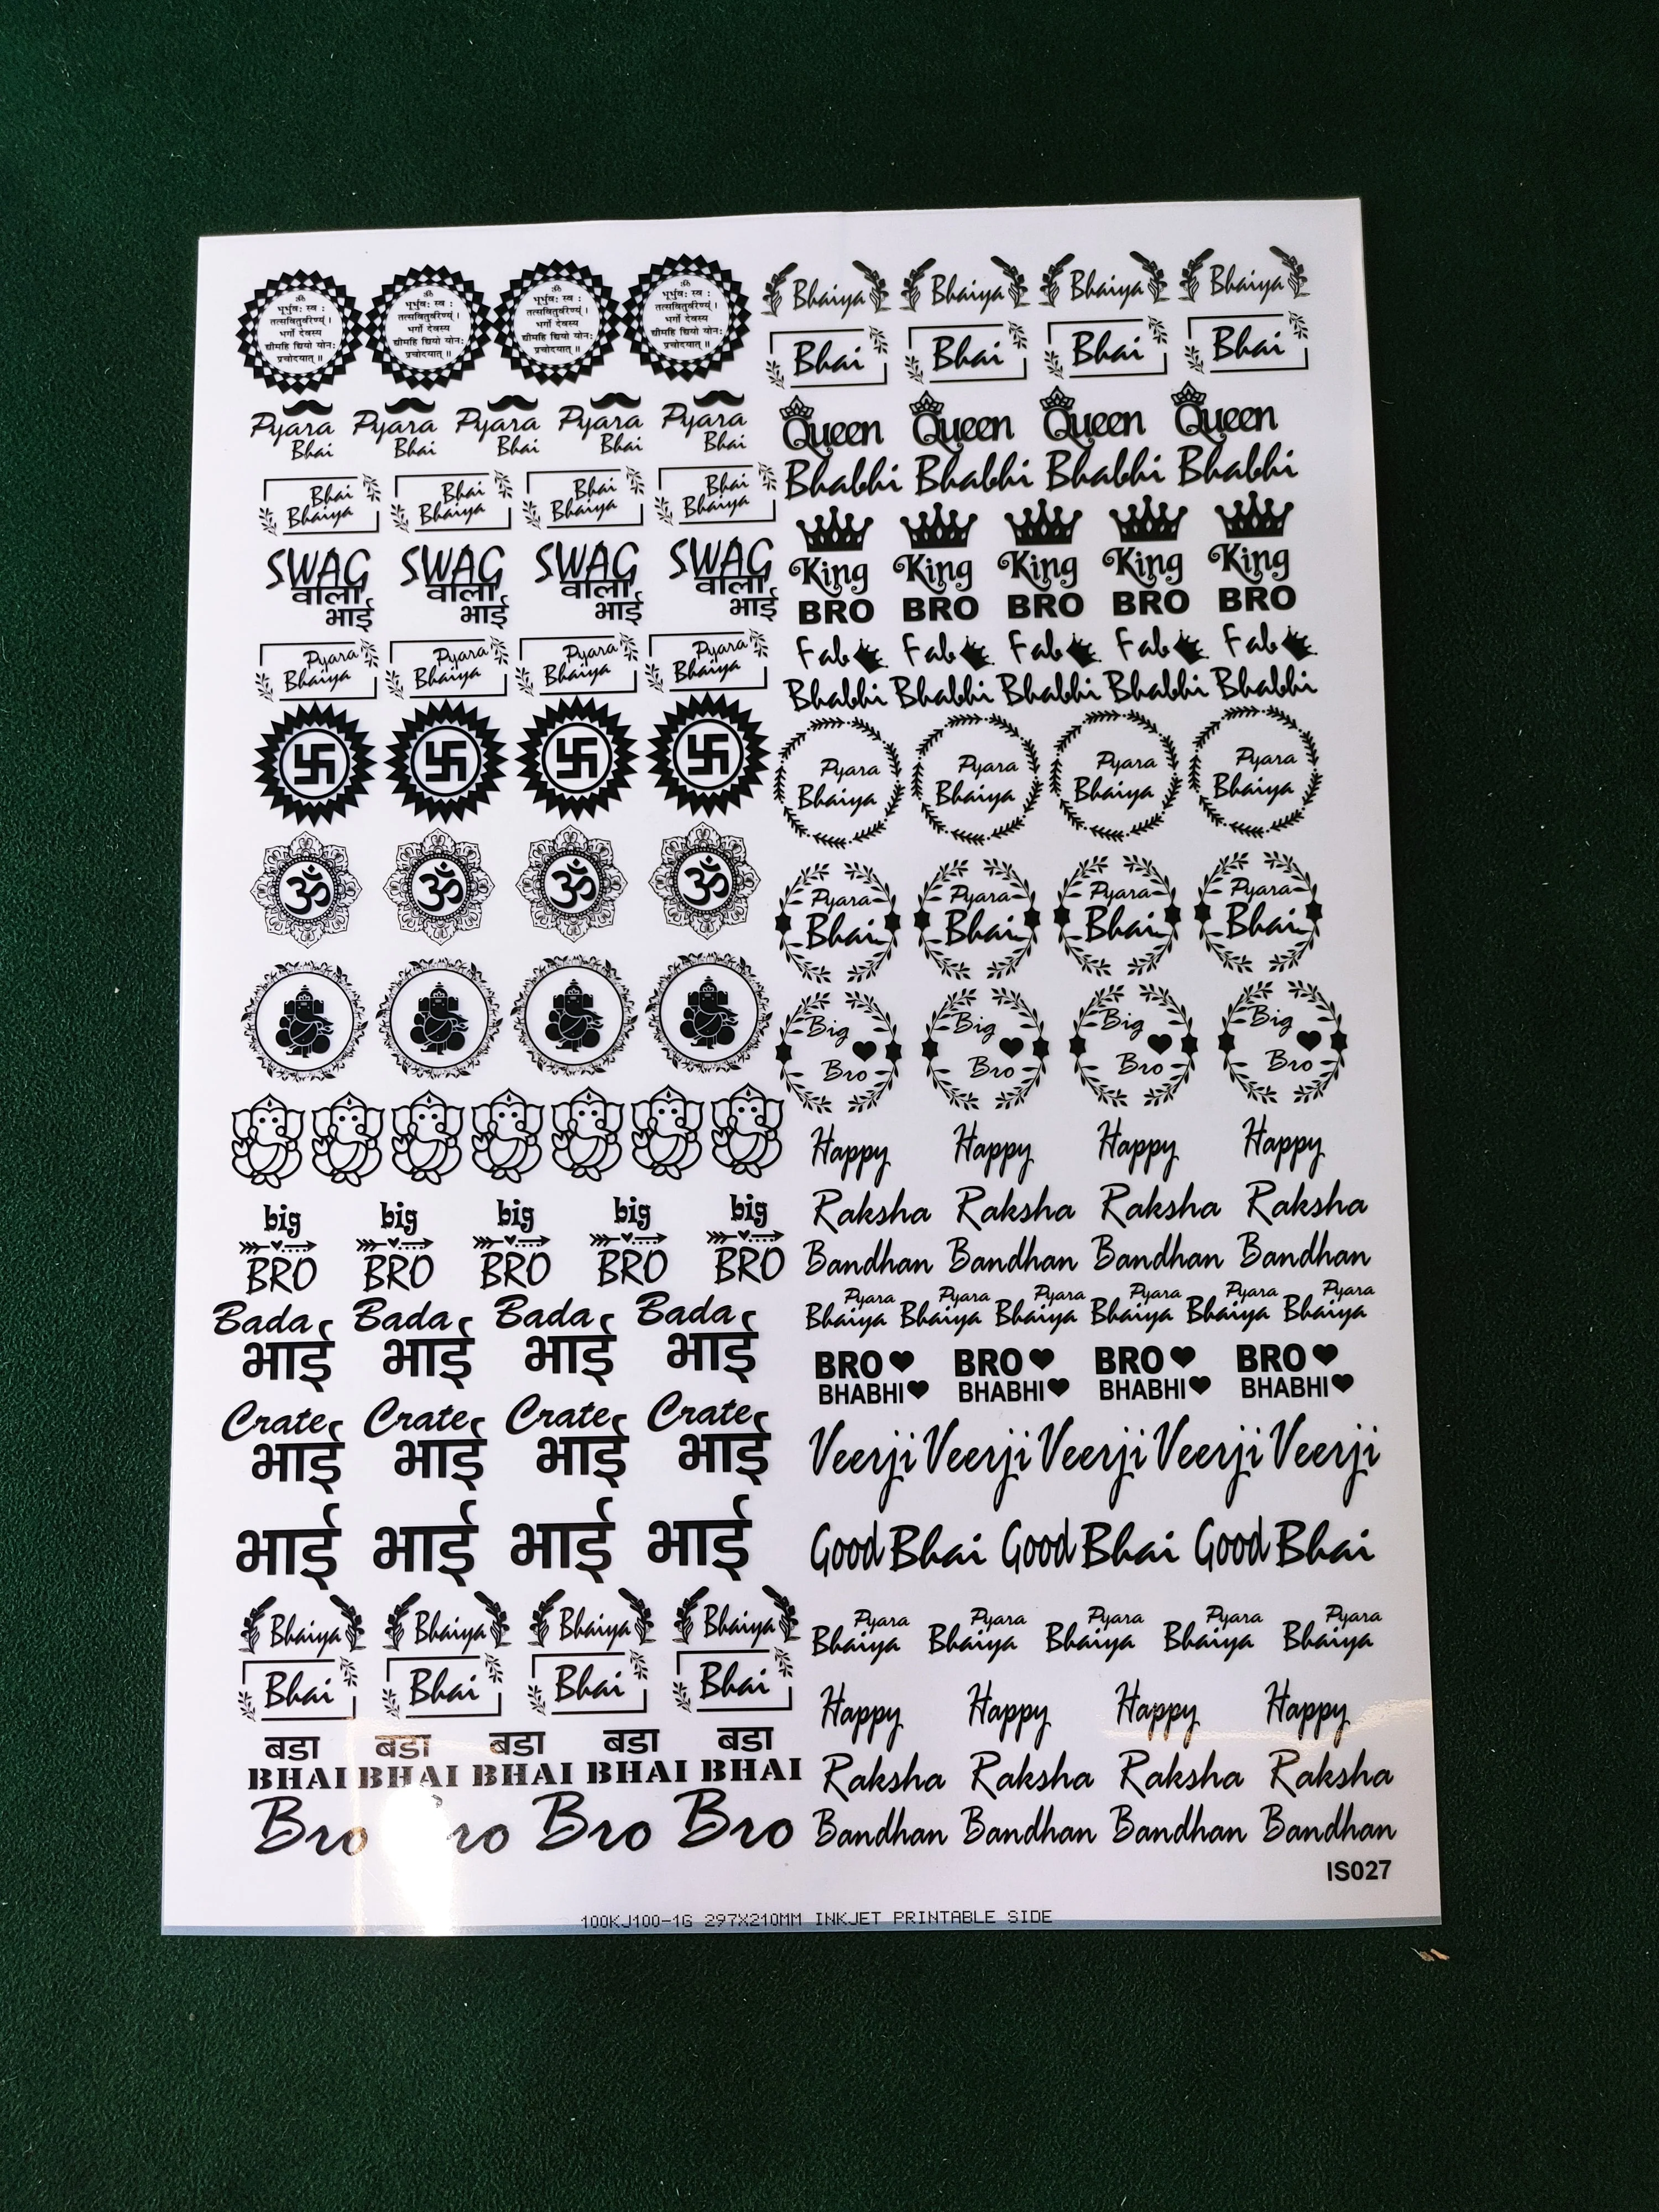 ॐ ॐ ॐ ॐ
भूर्भुवः स्वः भूर्भुवः स्वः भूर्भुवः स्वः भूर्भुवः स्वः
तत्सवितुर्वरेण्यं। तत्सवितुर्वरेण्यं। तत्सवितुर्वरेण्यं। तत्सवितुर्वरेण्यं।
भर्गो देवस्य भर्गो देवस्य भर्गो देवस्य भर्गो देवस्य
धीमहि धियो योनः धीमहि धियो योनः धीमहि धियो योनः धीमहि धियो योनः
प्रचोदयात्॥ प्रचोदयात्॥ प्रचोदयात्॥ प्रचोदयात्॥
Pyara Pyara Pyara Pyara Pyara
Bhai Bhai Bhai Bhai Bhai
Bhai Bhai Bhai Bhai
Bhaiya Bhaiya Bhaiya Bhaiya
SWAG SWAG SWAG SWAG
वाला वाला वाला वाला
भाई भाई भाई भाई
Pyara Pyara Pyara Pyara
Bhaiya Bhaiya Bhaiya Bhaiya
ॐ ॐ ॐ ॐ
big big big big big
BRO BRO BRO BRO BRO
Bada Bada Bada Bada
भाई भाई भाई भाई
Crate Crate Crate Crate
भाई भाई भाई भाई
भाई भाई भाई भाई
Bhaiya Bhaiya Bhaiya Bhaiya
Bhai Bhai Bhai Bhai
बडा बडा बडा बडा बडा
BHAI BHAI BHAI BHAI BHAI
Bro ro Bro Bro
Bhaiya Bhaiya Bhaiya Bhaiya
Bhai Bhai Bhai Bhai
Queen Queen Queen Queen
Bhabhi Bhabhi Bhabhi Bhabhi
King King King King King
BRO BRO BRO BRO BRO
Fab Fab Fab Fab Fab
Bhabhi Bhabhi Bhabhi Bhabhi Bhabhi
Pyara Pyara Pyara Pyara
Bhaiya Bhaiya Bhaiya Bhaiya
Pyara Pyara Pyara Pyara
Bhai Bhai Bhai Bhai
Big Big Big Big
Bro Bro Bro Bro
Happy Happy Happy Happy
Raksha Raksha Raksha Raksha
Bandhan Bandhan Bandhan Bandhan
Pyara Pyara Pyara Pyara Pyara Pyara
Bhaiya Bhaiya Bhaiya Bhaiya Bhaiya Bhaiya
BRO BRO BRO BRO
BHABHI BHABHI BHABHI BHABHI
Veerji Veerji Veerji Veerji Veerji
Good Bhai Good Bhai Good Bhai
Pyara Pyara Pyara Pyara Pyara
Bhaiya Bhaiya Bhaiya Bhaiya Bhaiya
Happy Happy Happy Happy
Raksha Raksha Raksha Raksha
Bandhan Bandhan Bandhan Bandhan
IS027
100KJ100-1G 297X210MM INKJET PRINTABLE SIDE